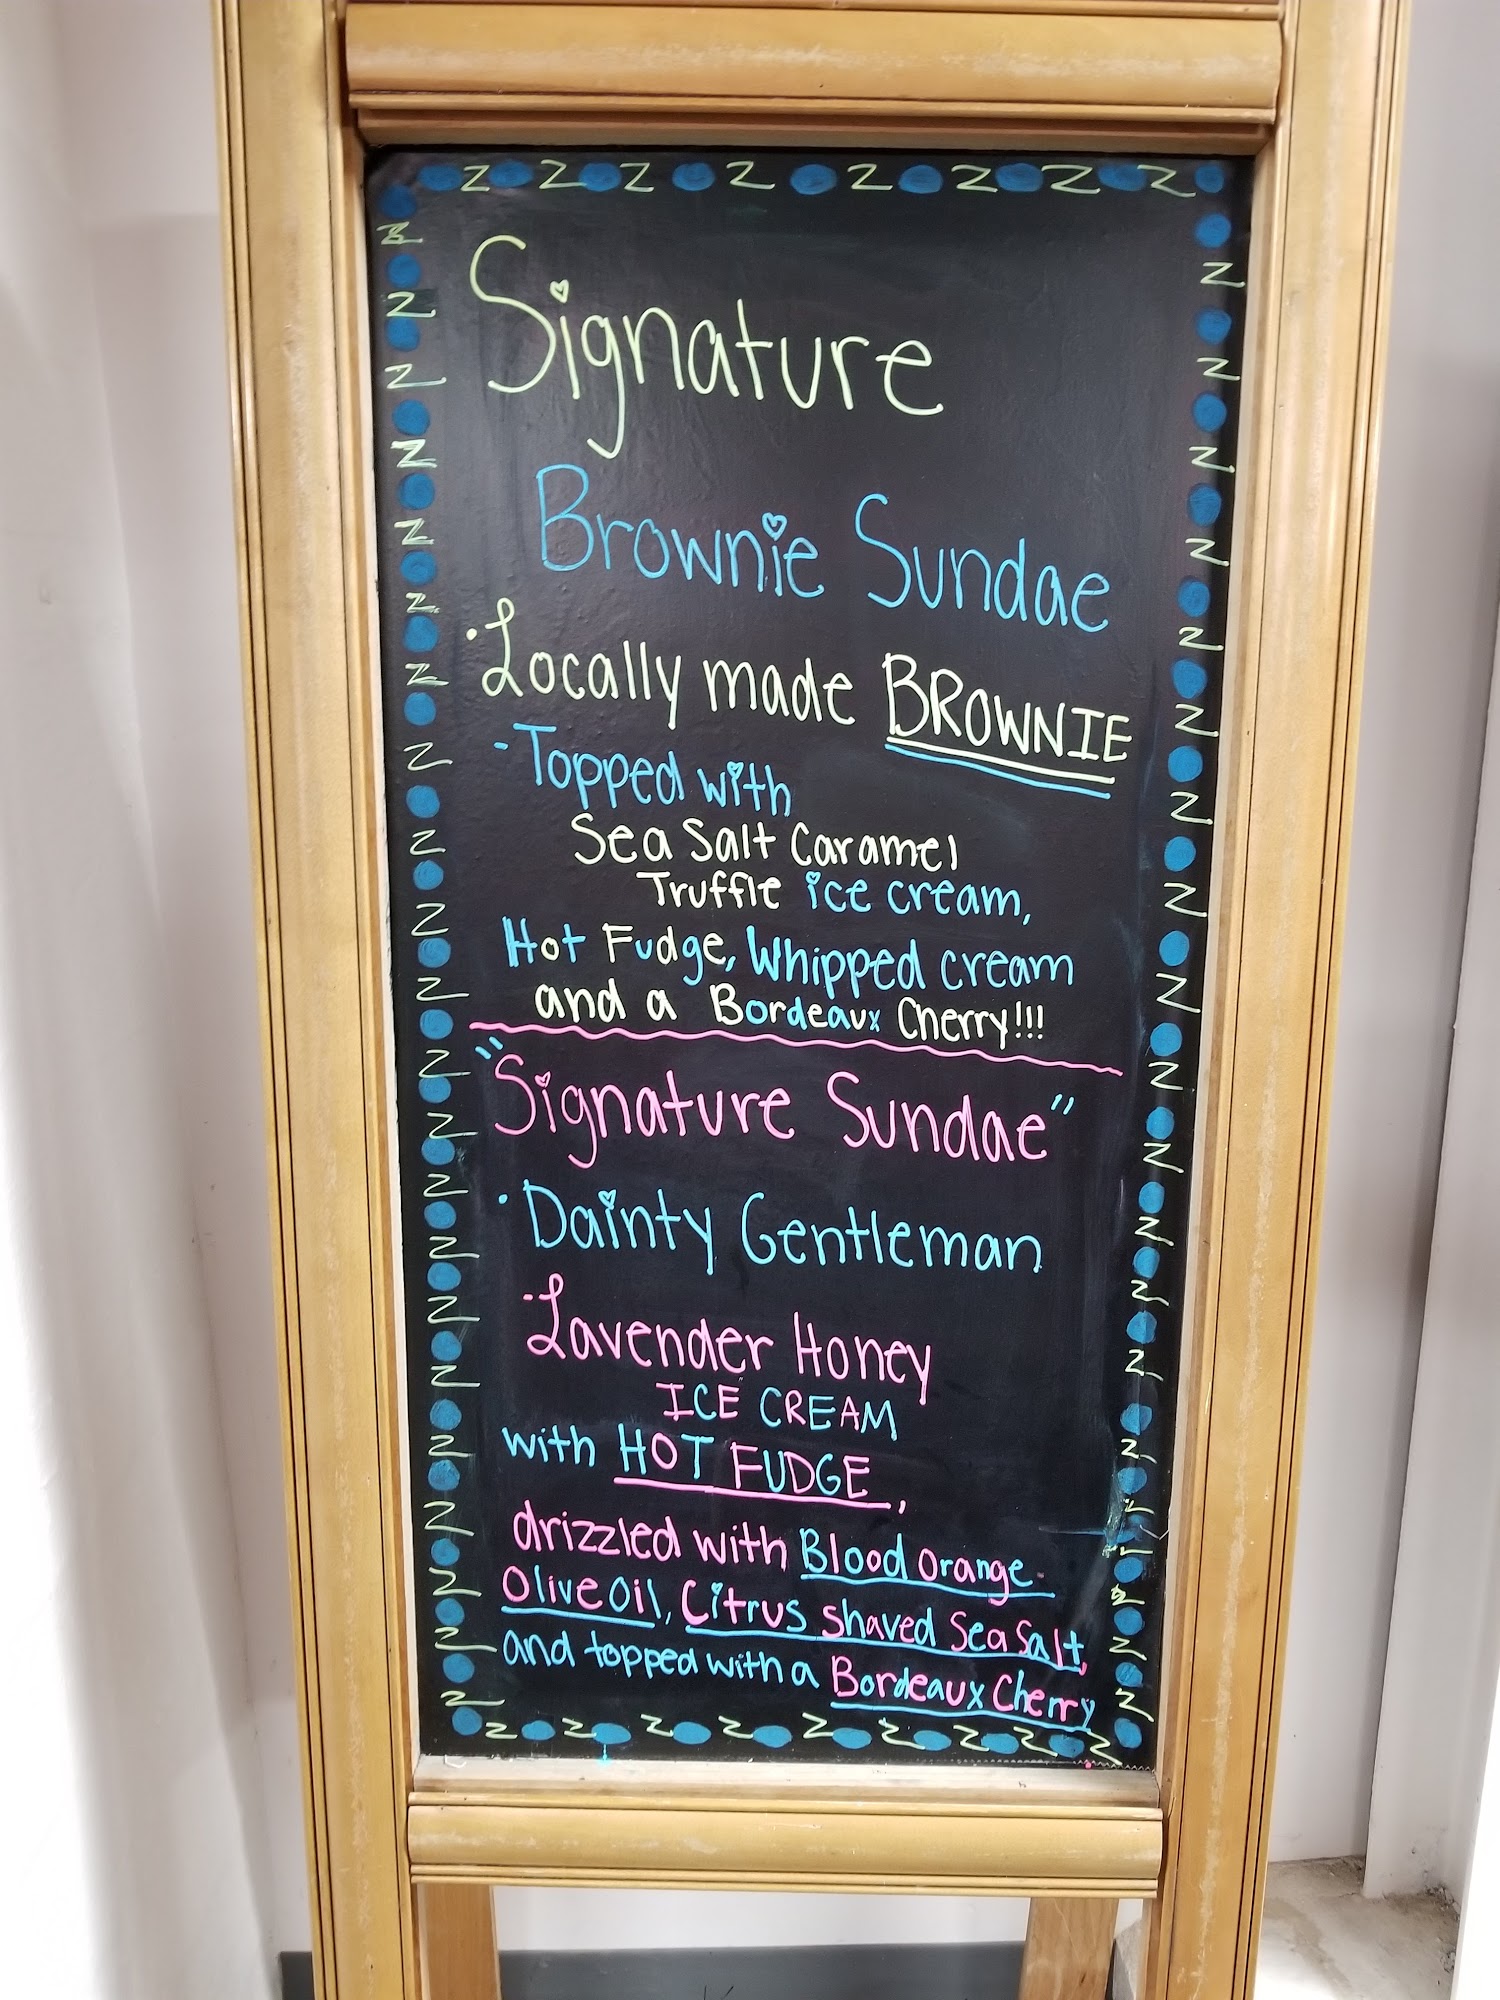 Signature
Brownie Sundae
·Locally made BROWNIE
-Topped with
Sea Salt Caramel
Truffle ice cream,
Hot Fudge, Whipped cream
and a Bordeaux Cherry!!!
"Signature Sundae"
·Dainty Gentleman
-Lavender Honey
ICE CREAM
with HOT FUDGE,
drizzled with Blood orange
Olive Oil, Citrus shaved Sea Salt,
and topped with a Bordeaux Cherry